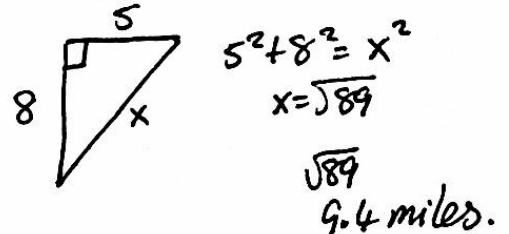 5
8
x
5²+8²= x²
x=√89
√89
9.4 miles.